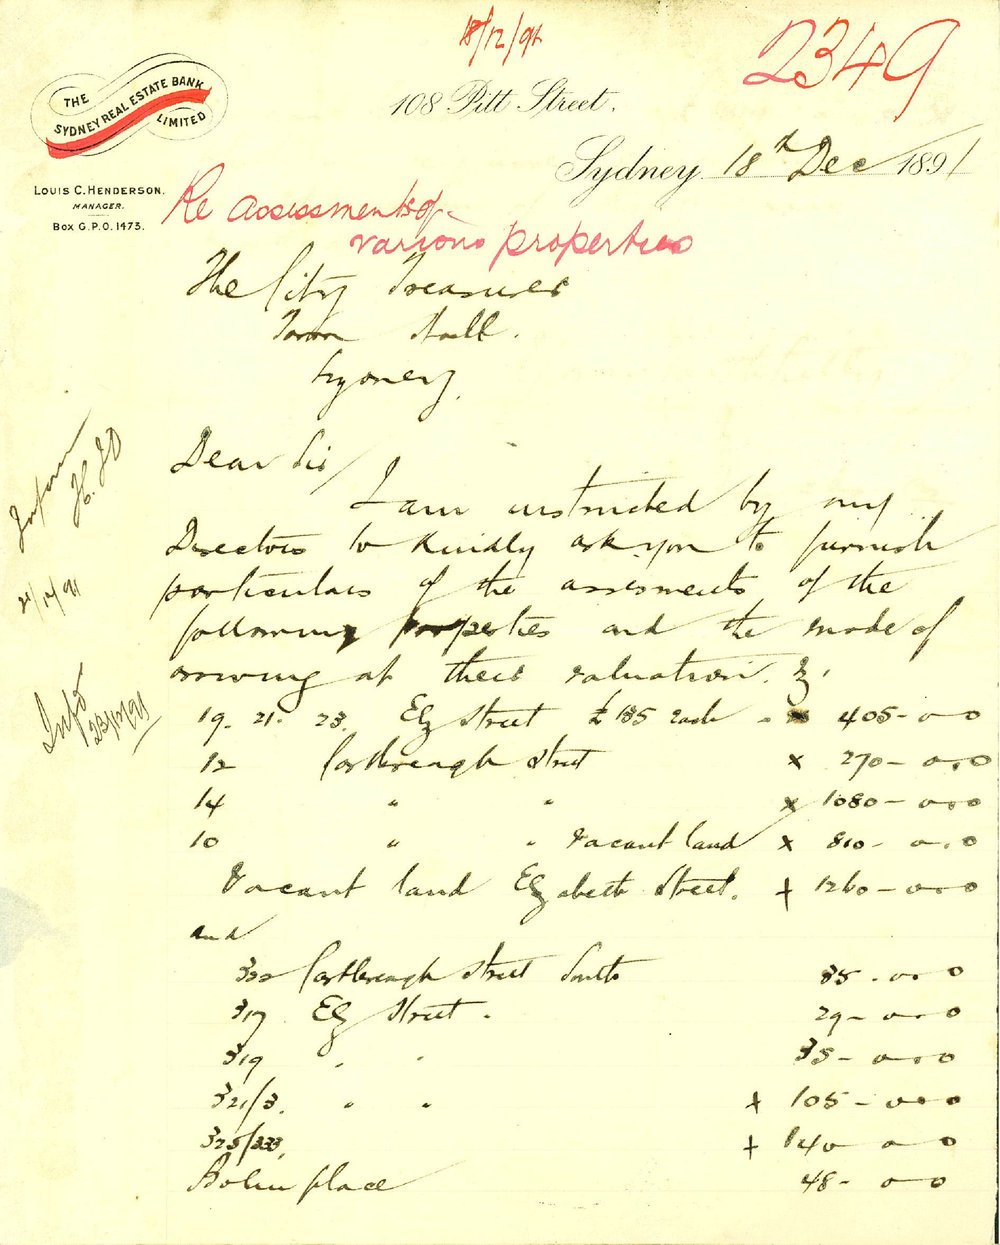 18/12/91
2349
THE
SYDNEY REAL ESTATE BANK
LIMITED
108 Pitt Street.
Sydney. 18th Dec 1891
LOUIS C. HENDERSON.
MANAGER.
BOX G.P.O. 1473.
Re assessments of
various properties
The City Treasurer
Town Hall.
Sydney.
Dear Sir/
I am instructed by my
Directors to kindly ask you to furnish
particulars of the assesments of the
following properties and the mode of
arriving at their valuation.
19. 21. 23. Elz Street £135 each x 405-0-0
12 Castlereagh Street x 270-0.0.0
14 " " x 1080-0.0.0
10 " " vacant land x 810-0.0.0
Vacant land Elzabeth Street. + 1260-0.0.0
and
Castlereagh Street South 35.0.0.0
317 Elz Street. 29-0.0.0
319 " " 35-0.0.0
321/3. " " + 105-0.0.0
325/333. + 140 0 0
place 48-0 0
Inform
H. JD
21/12/91
Infd
23/12/91